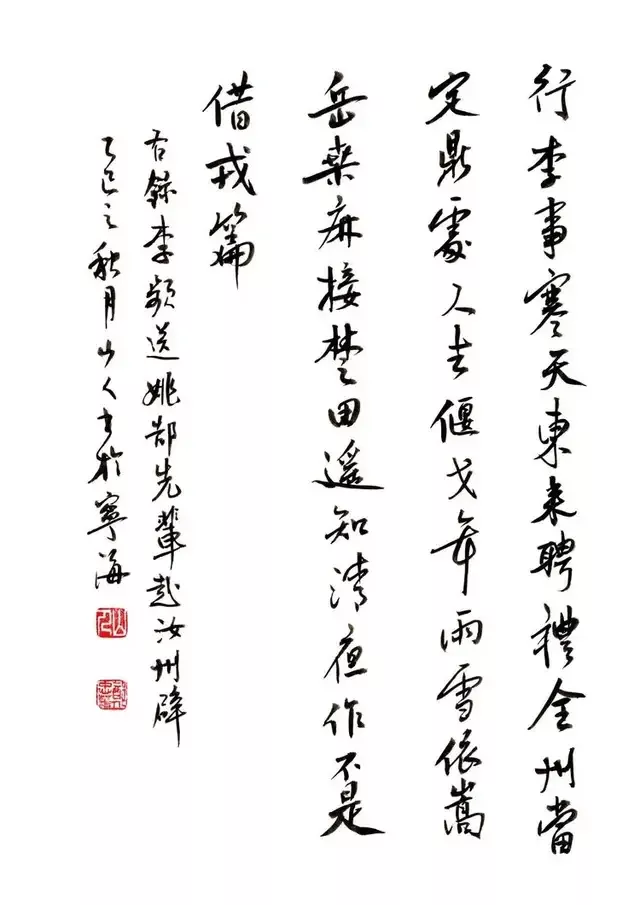 行李事寒天東来聘禮全州當
定鼎處人去偃戈年雨雪依嵩
岳桑麻接楚田遥知清夜作不是
借戎篇
右録李頻送姚郜先輩赴汝州辟
乙巳之秋月山人書於寧海